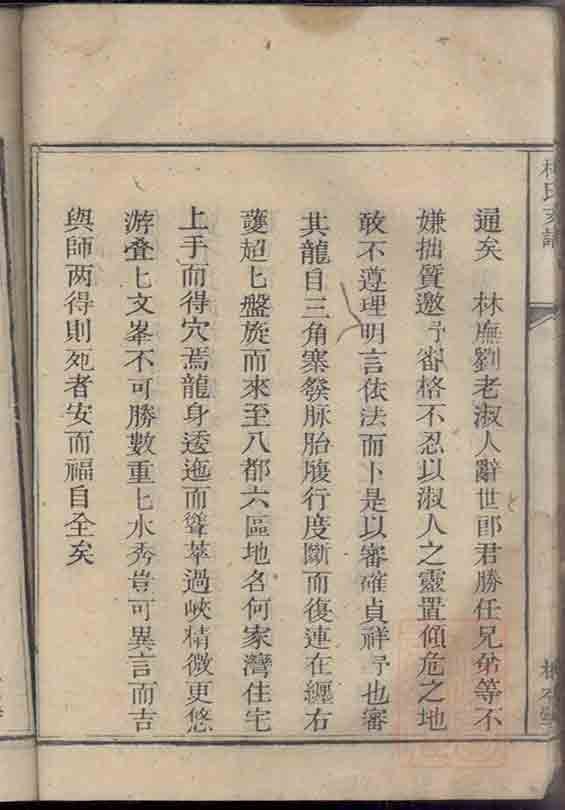 林氏支譜
通矣　林廡劉老淑人辭世郎君勝任兄弟等不
嫌拙質邀予審格不忍以淑人之靈置傾危之地
敢不遵理明言依法而卜是以審確貞祥予也審
其龍自三角寨發脉胎腹行度斷而復連在纏右
護超七盤旋而來至八都六區地名何家灣住宅
上手而得穴焉龍身逶迤而聳萃過峽精微更悠
游叠七文峯不可勝數重七水秀豈可異言而吉
與師两得則死者安而福自全矣